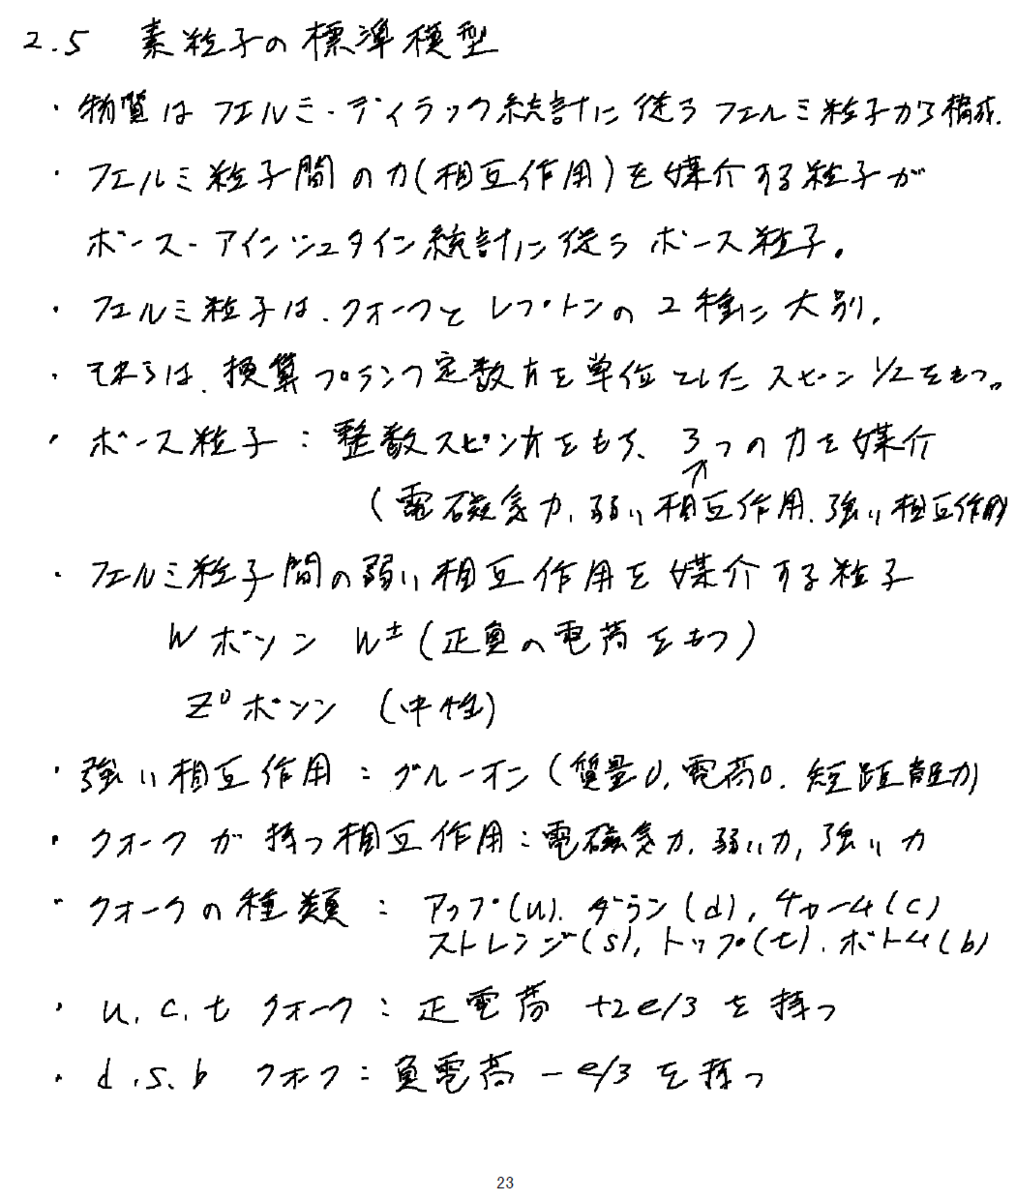 2.5 素粒子の標準模型
・物質はフェルミ・ディラック統計に従うフェルミ粒子から構成.
・フェルミ粒子間の力(相互作用)を媒介する粒子が
ボース-アインシュタイン統計に従うボース粒子。
・フェルミ粒子は、クォークとレプトンの2種に大別。
・それらは、換算プランク定数ℏを単位としたスピン1/2をもつ。
・ボース粒子：整数スピンℏをもち、3つの力を媒介
↑
(電磁気力、弱い相互作用、強い相互作用)
・フェルミ粒子間の弱い相互作用を媒介する粒子
Wボソン W±(正負の電荷をもつ)
Z⁰ボソン (中性)
・強い相互作用：グルーオン(質量0, 電荷0. 短距離力)
・クォークが持つ相互作用：電磁気力、弱い力, 強い力
・クォークの種類： アップ(u)、ダウン(d), チャーム(c)
ストレンジ(s), トップ(t)、ボトム(b)
・u, c, t クォーク：正電荷 +2e/3 を持つ
・d, s, b クォーク：負電荷 -e/3 を持つ
23